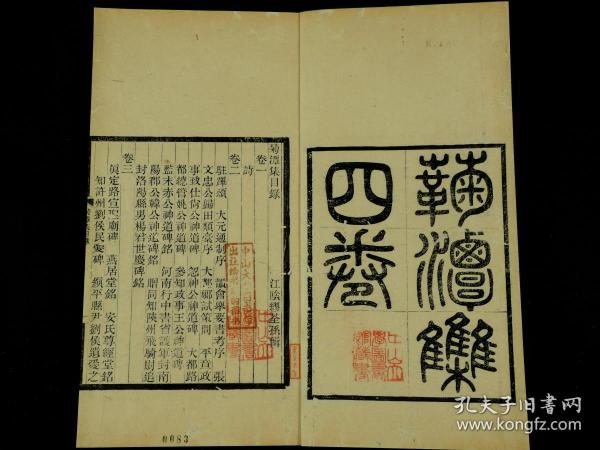 菊潭集
四卷
菊潭集目錄
江陰繆荃孫輯
卷一
詩
卷二
駐蹕頌 大元通制序 讀會舉要書考序 張
文忠公歸田類稾序 大都鄉試策問 平章政
事致仕尚公神道碑 忽神公神道碑 大都路
都總管姚公神道碑 參知政事王公神道碑
藍末赤公神道碑銘 河南行中書省
陽郡公韓公神道碑銘 贈同知陝州飛騎尉追
封洛陽縣男楊君世慶碑銘
卷三
眞定路宣聖廟碑 燕居堂銘 安氏尊經堂銘
知許州劉侯民愛碑 順平縣尹劉侯遺愛之
0083
孔夫子旧書网
www.kongfz.com